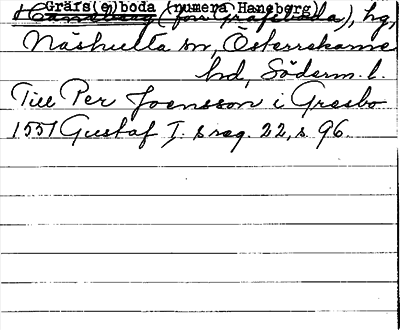 Gräfs(e)boda (numera Hansberg)
Hansberg (förr Gräfseboda), hg,
Näshulta sn, Österrekarne
hd, Söderm. l.
Till Per Joensson i Gresbo
1551 Gustaf I. s reg. 22, s. 96.